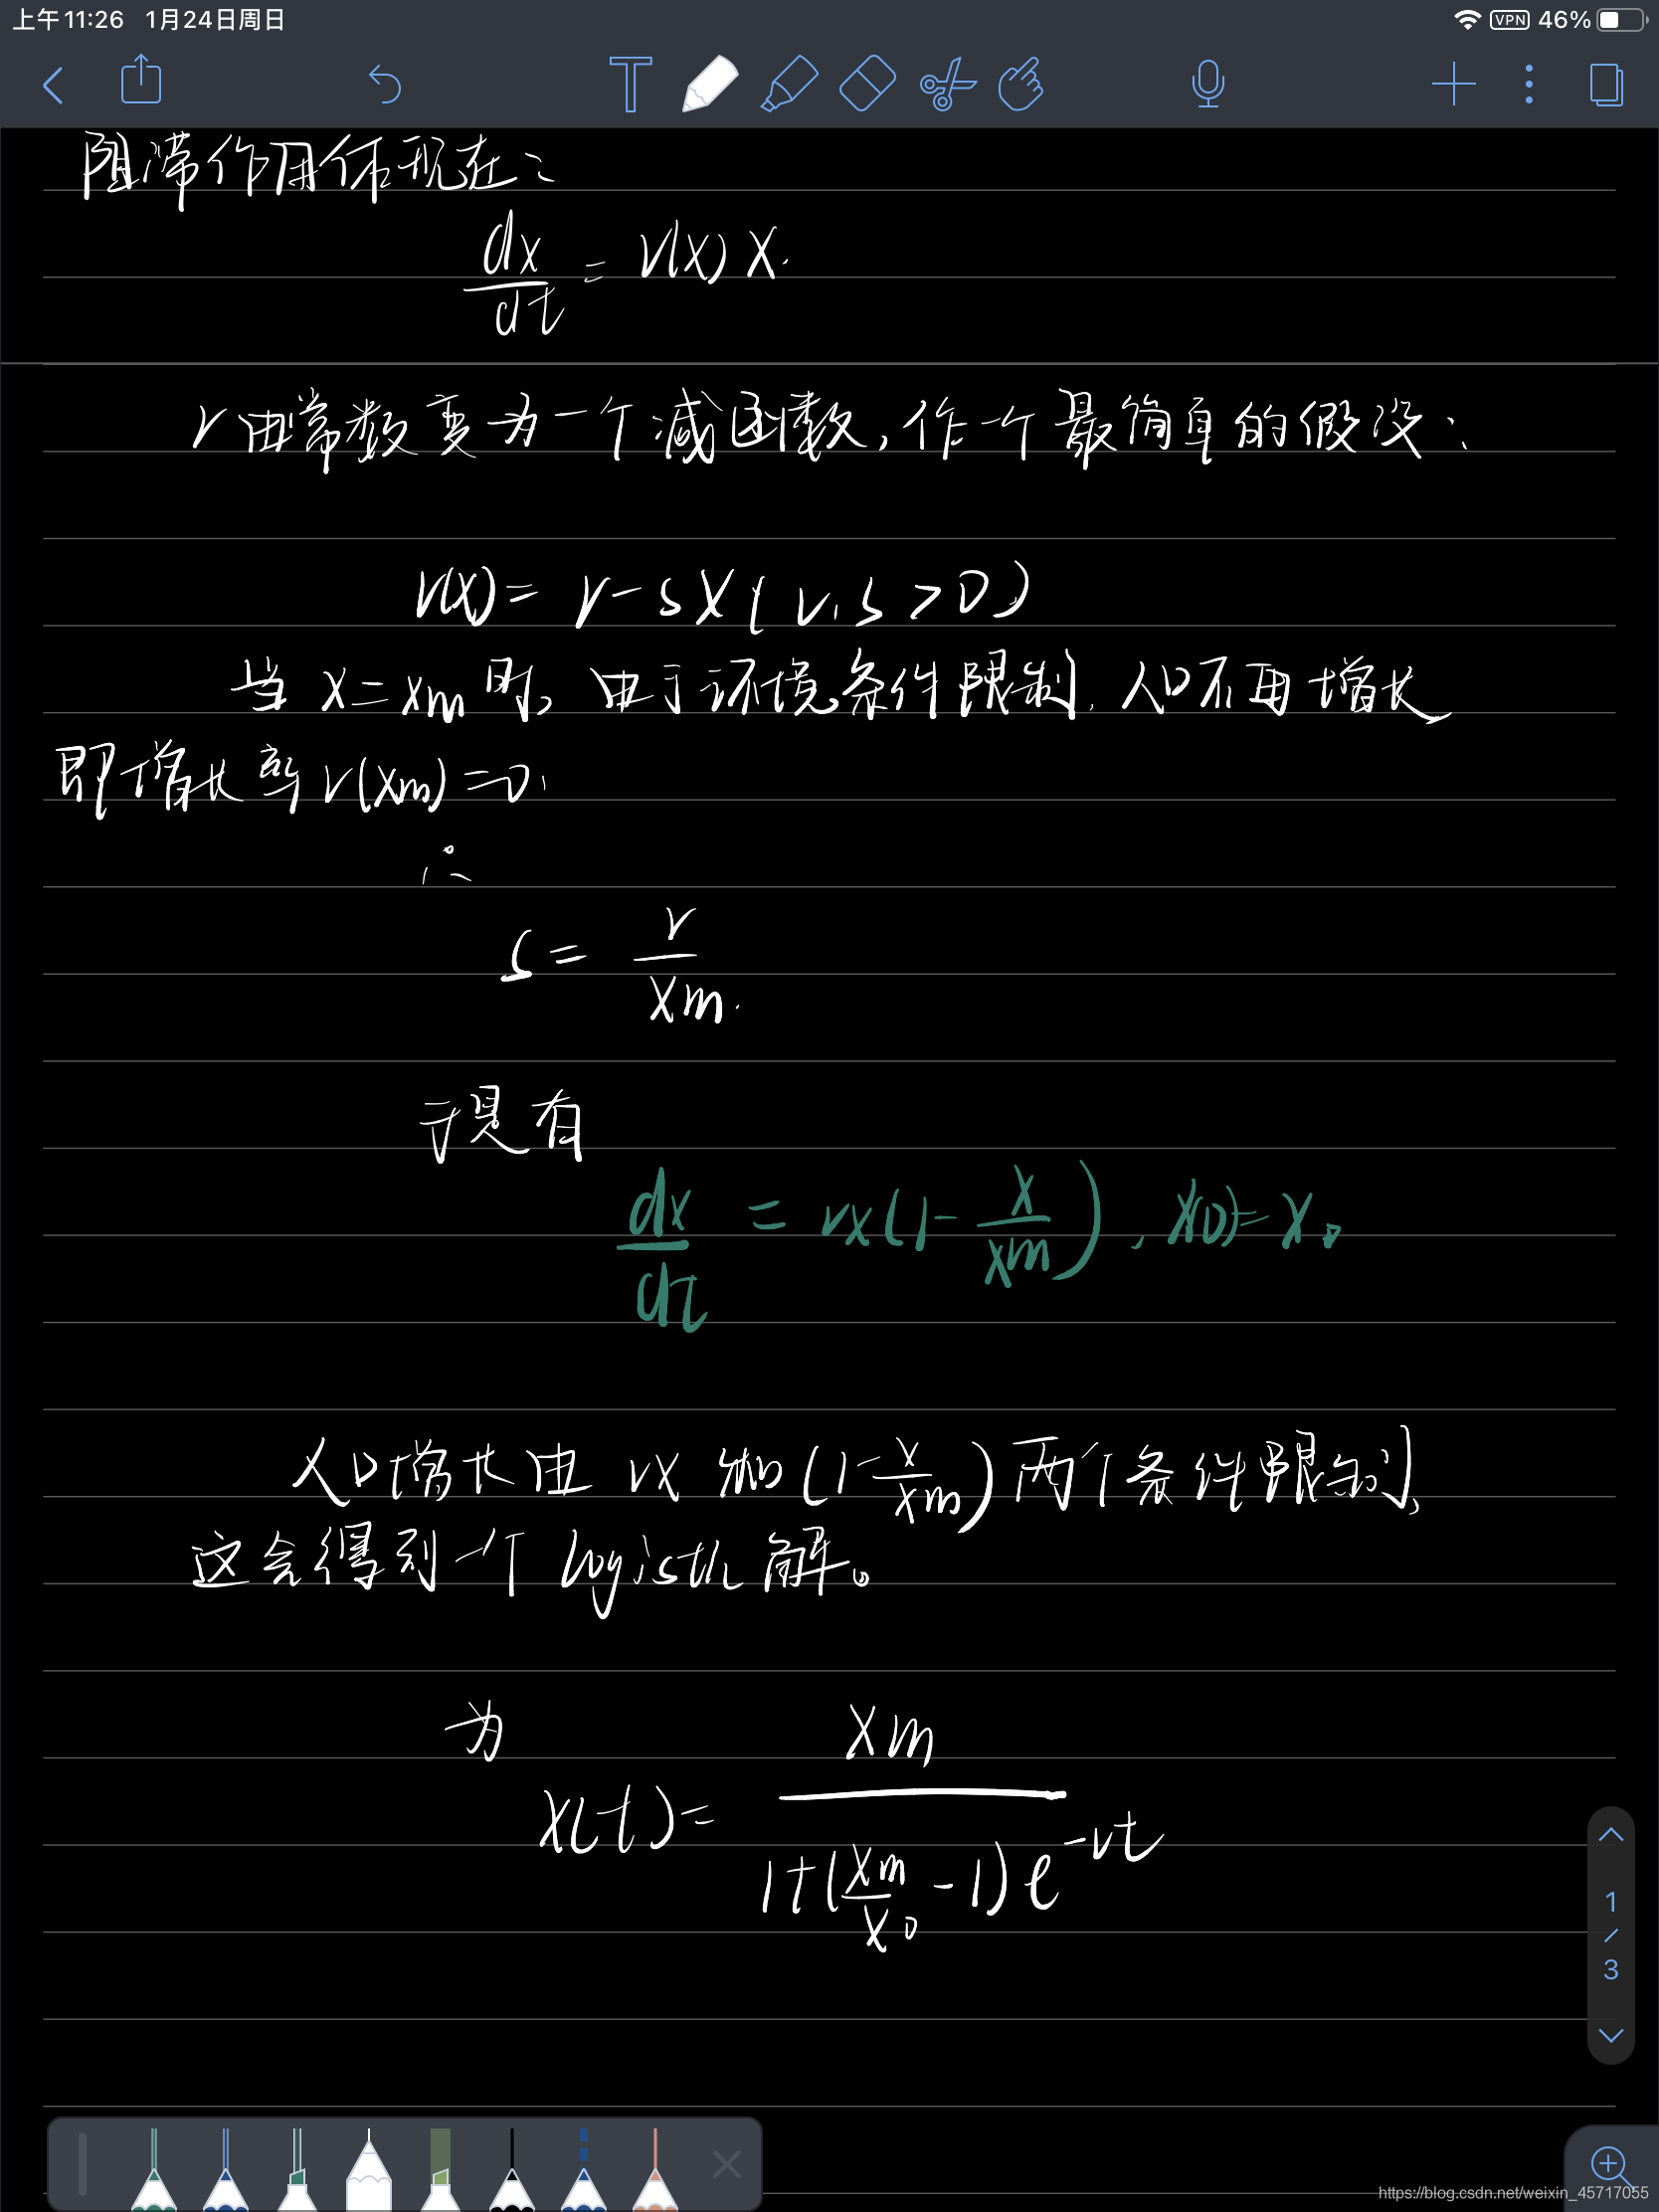 上午11:26 1月24日周日
VPN 46%
T
阻滞作用体现在：
dx/dt = r(x) x.
r由常数变为一个减函数，作一个最简单的假设：
r(x) = r - sx (r, s > 0)
当 x = xm 时，由于环境条件限制，人口不再增长
即增长率 r(xm) = 0.
∴
s = r/xm.
于是有
dx/dt = rx(1 - x/xm), x(0) = x0
人口增长由 rx 和 (1 - x/xm) 两个条件限制，
这会得到一个 logistic 解。
为
x(t) = xm / (1 + (xm/x0 - 1) e^-rt)
1
/
3
https://blog.csdn.net/weixin_45717055